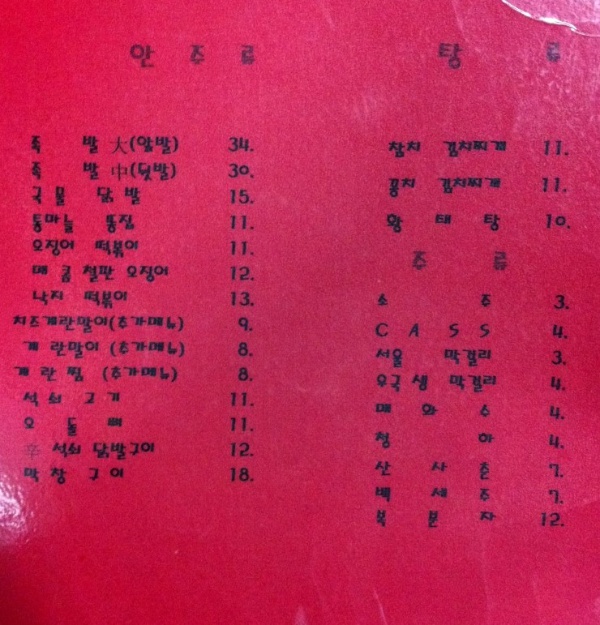 안주류
족발 大(앞발) 34.
족발 中(뒷발) 30.
국물닭발 15.
통마늘 똥집 11.
오징어 떡볶이 11.
매콤철판오징어 12.
낙지 떡볶이 13.
치즈계란말이(추가메뉴) 9.
계란말이 (추가메뉴) 8.
계란찜 (추가메뉴) 8.
석쇠고기 11.
오돌뼈 11.
辛 석쇠 닭발구이 12.
막창구이 18.
탕류
참치 김치찌개 11.
꽁치 김치찌개 11.
황태탕 10.
주류
소주 3.
CASS 4.
서울 막걸리 3.
우국생 막걸리 4.
매화수 4.
청하 4.
산사춘 7.
백세주 7.
복분자 12.